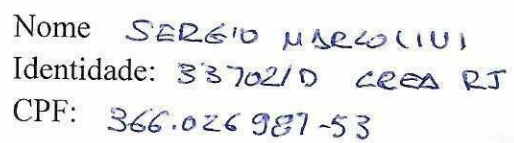 Nome SERGIO MARCOLINI
Identidade: 337021D CREA RJ
CPF: 366.026987-53